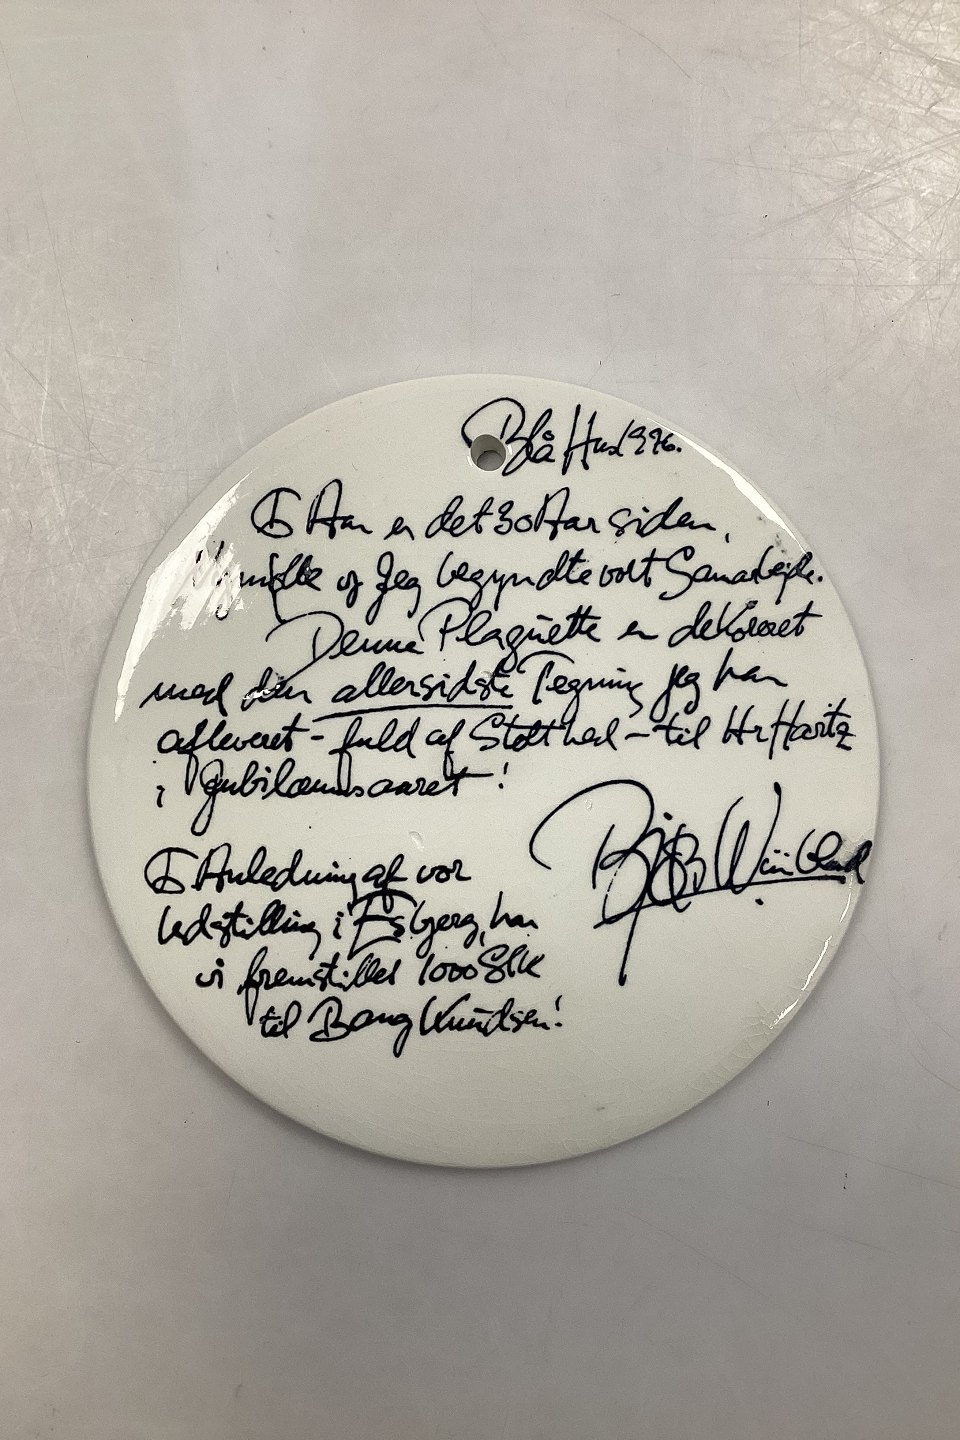 Blå Hus 1976.
I Aar er det 30 Aar siden,
Nymølle og Jeg begyndte vort Samarbejde.
Denne Plaquette er dekoreret
med den allersidste Tegning jeg har
afleveret - fuld af Stolthed - til Hr Haritz
i Jubilæumsaaret!
Bjørn Wiinblad
I Anledning af vor
Udstilling i Esbjerg, har
vi fremstillet 1000 Stk
til Bang Knudsen!